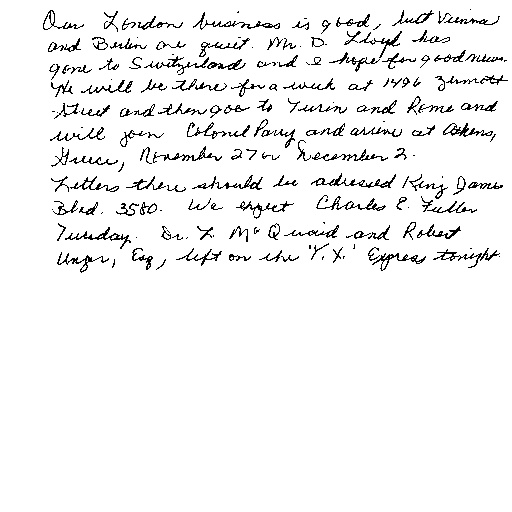 Our London business is good, but Vienna
and Berlin are quiet. Mr. D. Lloyd has
gone to Switzerland and I hope for good news.
He will be there for a week at 1496 Zermott
Street and then goes to Turin and Rome and
will join Colonel Parry and arrive at Athens,
Greece, November 27 or December 2.
Letters there should be adressed King James
Blvd. 3580. We expect Charles E. Fuller
Tuesday. Dr. L. McQuaid and Robert
Unger, Esq., left on the 'Y.X.' Express tonight.